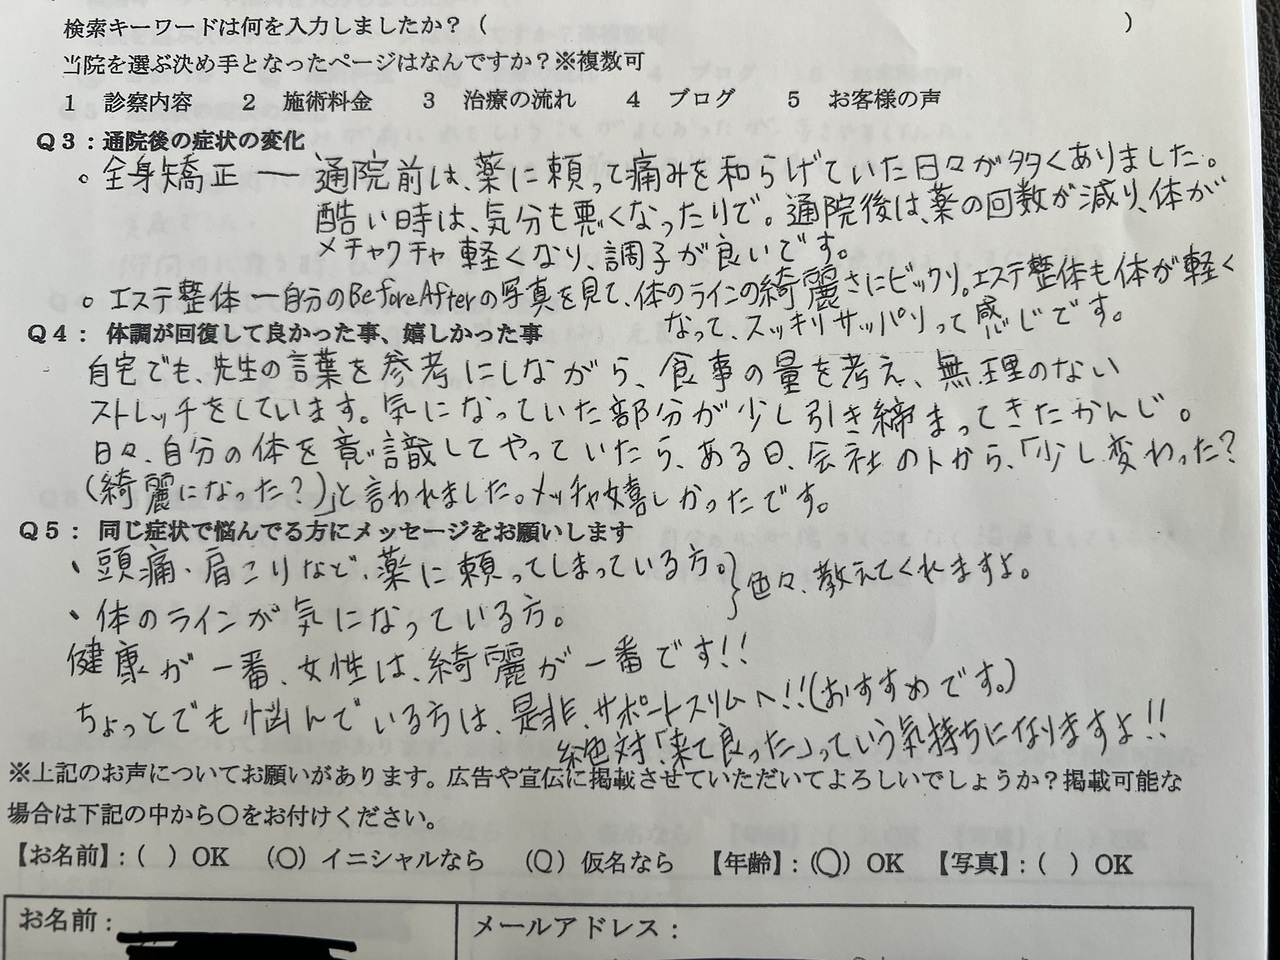 検索キーワードは何を入力しましたか？（　　　）
当院を選ぶ決め手となったページはなんですか？※複数可
1　診察内容　2　施術料金　3　治療の流れ　4　ブログ　5　お客様の声
Ｑ3：通院後の症状の変化
○ 全身矯正 ー 通院前は、薬に頼って痛みを和らげていた日々が多くありました。
酷い時は、気分も悪くなったりで。通院後は、薬の回数が減り、体が
メチャクチャ軽くなり、調子が良いです。
○ エステ整体 ー 自分のBeforeAfterの写真を見て、体のラインの綺麗さにビックリ。エステ整体も体が軽く
なって、スッキリサッパリって感じです。
Ｑ4：体調が回復して良かった事、嬉しかった事
自宅でも、先生の言葉を参考にしながら、食事の量を考え、無理のない
ストレッチをしています。気になっていた部分が少し引き締まってきたかんじ。
日々、自分の体を意識してやっていたら、ある日、会社の人から、「少し変わった？
(綺麗になった？)」と言われました。メッチャ嬉しかったです。
Ｑ5：同じ症状で悩んでる方にメッセージをお願いします
、頭痛・肩こりなど、薬に頼ってしまっている方。} 色々、教えてくれますよ。
、体のラインが気になっている方。
健康が一番、女性は、綺麗が一番です!!
ちょっとでも悩んでいる方は、是非、サポートスリムへ!!(おすすめです。)
絶対「来て良った」っていう気持ちになりますよ!!
※上記のお声についてお願いがあります。広告や宣伝に掲載させていただいてよろしいでしょうか？掲載可能な
場合は下記の中から○をお付けください。
【お名前】：(　) OK　(○) イニシャルなら　(○) 仮名なら　【年齢】：(○) OK　【写真】：(　) OK
お名前：　メールアドレス：